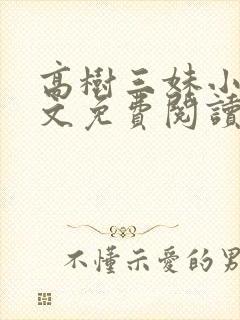 高樹三妹小
文免費閱讀
不懂示愛的男